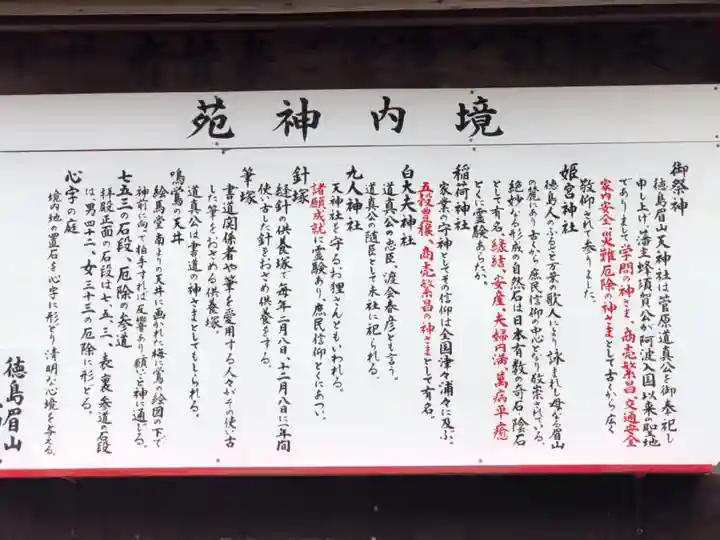 苑神内境
御祭神
徳島眉山天神社は菅原道真公を御奉祀し
申し上げ、藩主蜂須賀公が阿波入国以来の聖地
でありまして、学問の神さま、商売繁昌、交通安全
家内安全、災難厄除の神さまとして古から広く
敬仰されて参りました。
姫宮神社
徳島人のふるさと万葉の歌人により詠まれし母なる眉山
の麓にあり古くから庶民信仰の中心となり敬崇されている。
絶妙なる形成の自然石は日本有数の奇石・陰石
として有名。縁結、安産、夫婦円満、萬病平癒
とくに霊験あらたか。
稲荷神社
家業の守神としてその信仰は全国津々浦々に及ぶ、
五穀豊穣、商売繁昌の神さまとして有名。
白大夫神社
道真公の忠臣、渡会春彦とも言う。
道真公の随臣として末社に祀られる。
九人神社
天神社を守るお狸さんともいわれる。
諸願成就に霊験あり、庶民信仰とくにあつい。
針塚
縫針の供養塚で毎年二月八日、十二月八日に一年間
使い古した針をおさめ供養をする。
筆塚
書道関係者や筆を愛用する人々がその使い古
した筆をおさめる供養塚。
道真公は書道の神さまとしてもしられる。
鳴鶯の天井
絵馬堂南よりの天井に画かれた梅に鶯の絵図の下で
神前に向って拍手すれば反響あり、願ごと神に通じる。
七五三の石段、厄除の参道
拝殿正面の石段は七、五、三、表裏参道の石段
は、男四十二、女三十三の厄除に形どる。
心字の庭
境内地の置石を心字に形どり清明な心境を与える。
徳島眉山